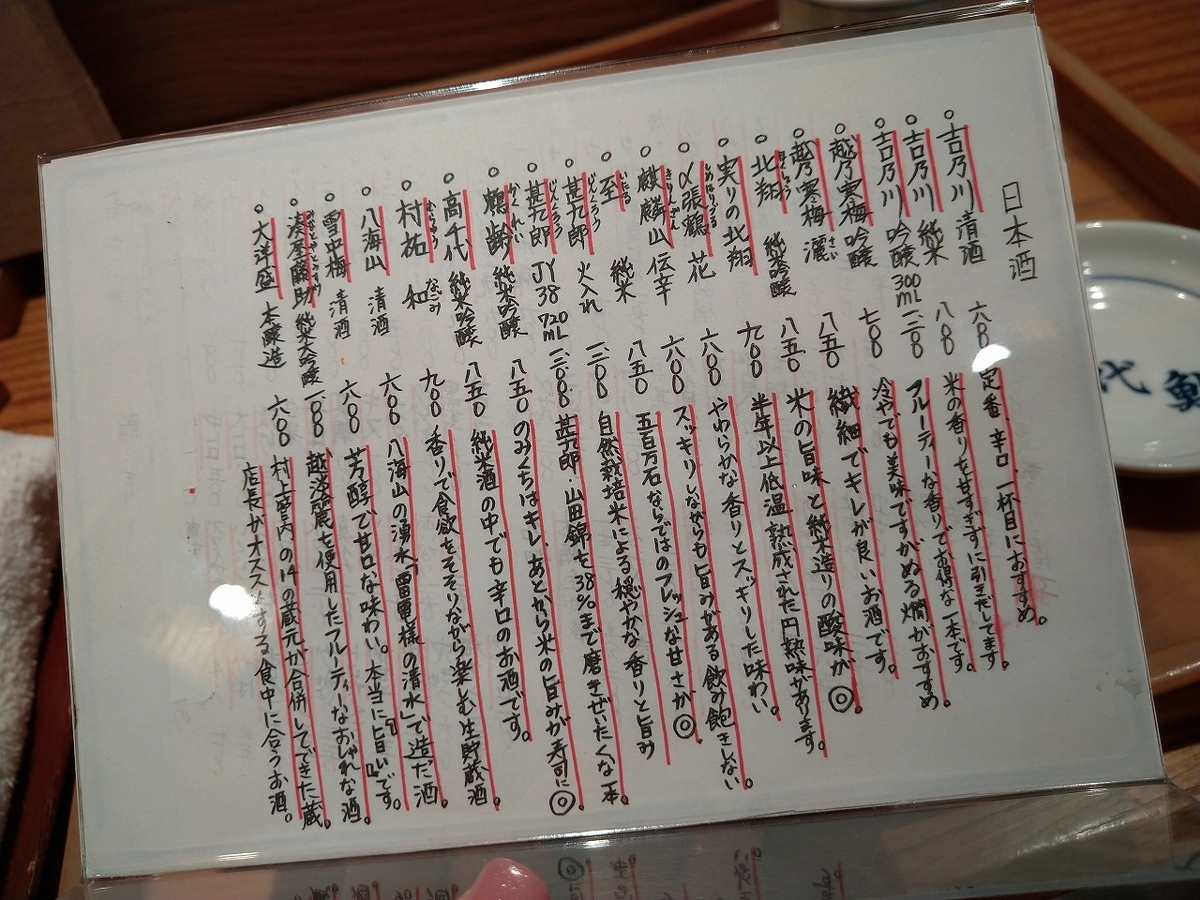 日本酒
○吉乃川 清酒 六〇〇 定番、辛口、一杯目におすすめ。
○吉乃川 純米 八〇〇 米の香りを甘すぎずに引きだしてます。
○吉乃川 吟醸 300mL 一二〇〇 フルーティーな香りでお得な一本です。
○越乃寒梅 吟醸 七〇〇 冷やでも美味ですがぬる燗がおすすめ。
○越乃寒梅 灑 さい 八五〇 繊細でキレが良いお酒です。
○北翔 ほくしょう 純米吟醸 八五〇 米の旨味と純米造りの酸味が◎。
○実りの北翔 九〇〇 半年以上低温熟成された円熟味があります。
○〆張鶴 しめはりつる 花 六〇〇 やわらかな香りとスッキリした味わい。
○麒麟山 きりんざん 伝辛 六〇〇 スッキリしながらも旨みがある飲み飽きしない。
○至 いたる 純米 八五〇 五百万石ならではのフレッシュな甘さが◎。
○甚九郎 じんくろう 火入れ 自然栽培米による穏やかな香りと旨み
○甚九郎 じんくろう JY38 720mL 甚九郎・山田錦を38%まで磨きぜいたくな一本。
○鶴齢 かくれい 純米吟醸 八五〇 のみくちはキレ、あとから米の旨みが寿司に◎。
○高千代 純米吟醸 八五〇 純米酒の中でも辛口のお酒です。
○村祐 むらゆう 和 なごみ 九〇〇 香りで食欲をそそりながら楽しむ生貯蔵酒。
○八海山 清酒 六〇〇 八海山の湧水「雷電様の清水」で造だ酒。
○雪中梅 清酒 六〇〇 芳醇で甘口な味わい。本当に『旨い』です。
○湊屋藤助 みなとやとうすけ 純米大吟醸 越淡麗を使用したフルーティーなおしゃれな酒。
○大洋盛 本醸造 六〇〇 村上市内の14の蔵元が合併してできた蔵。
店長がオススメする食中に合うお酒。
代